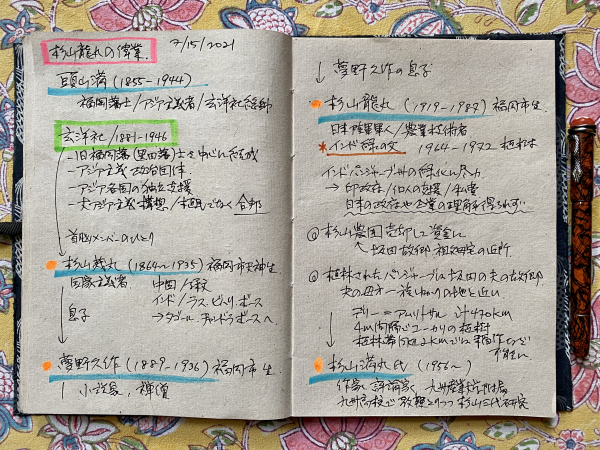 杉山龍丸の偉業. 7/15/2021
頭山満 (1855-1944)
福岡藩士/アジア主義者/玄洋社総帥
玄洋社/1881-1946
-旧福岡藩(黒田藩)士を中心に結成
-アジア主義 政治団体
-アジア各国の独立支援
-大アジア主義 構想/植民でなく合邦
首脳メンバーのひとり
杉山茂丸 (1864-1935) 福岡市天神生
国家主義者 中国/孫文
インド/ラス・ビハリ・ボース
→タゴール、チャンドラボースへ
息子
夢野久作 (1889-1936) 福岡市生.
小説家, 禅僧
↓ 夢野久作の息子
杉山龍丸 (1919-1987) 福岡市生.
日本陸軍軍人/農業技術者
*インド緑の父 1964-1972 植林
インド・パンジャーブ州の緑化に尽力
→印政府/個人の支援/私費
日本の政府や企業の理解を得られず
杉山農園 売却して資金に
坂田故郷 祖父宅の近所
植林されたパンジャーブは坂田の夫の故郷
夫の母方一族ゆかりの地と近い
デリー=アムリトサル 計470km
4m間隔でユーカリの植樹
杉山満丸氏 (1956~)
作家 評論家 九州産業
九州高校で教鞭とりつつ杉山三代研究